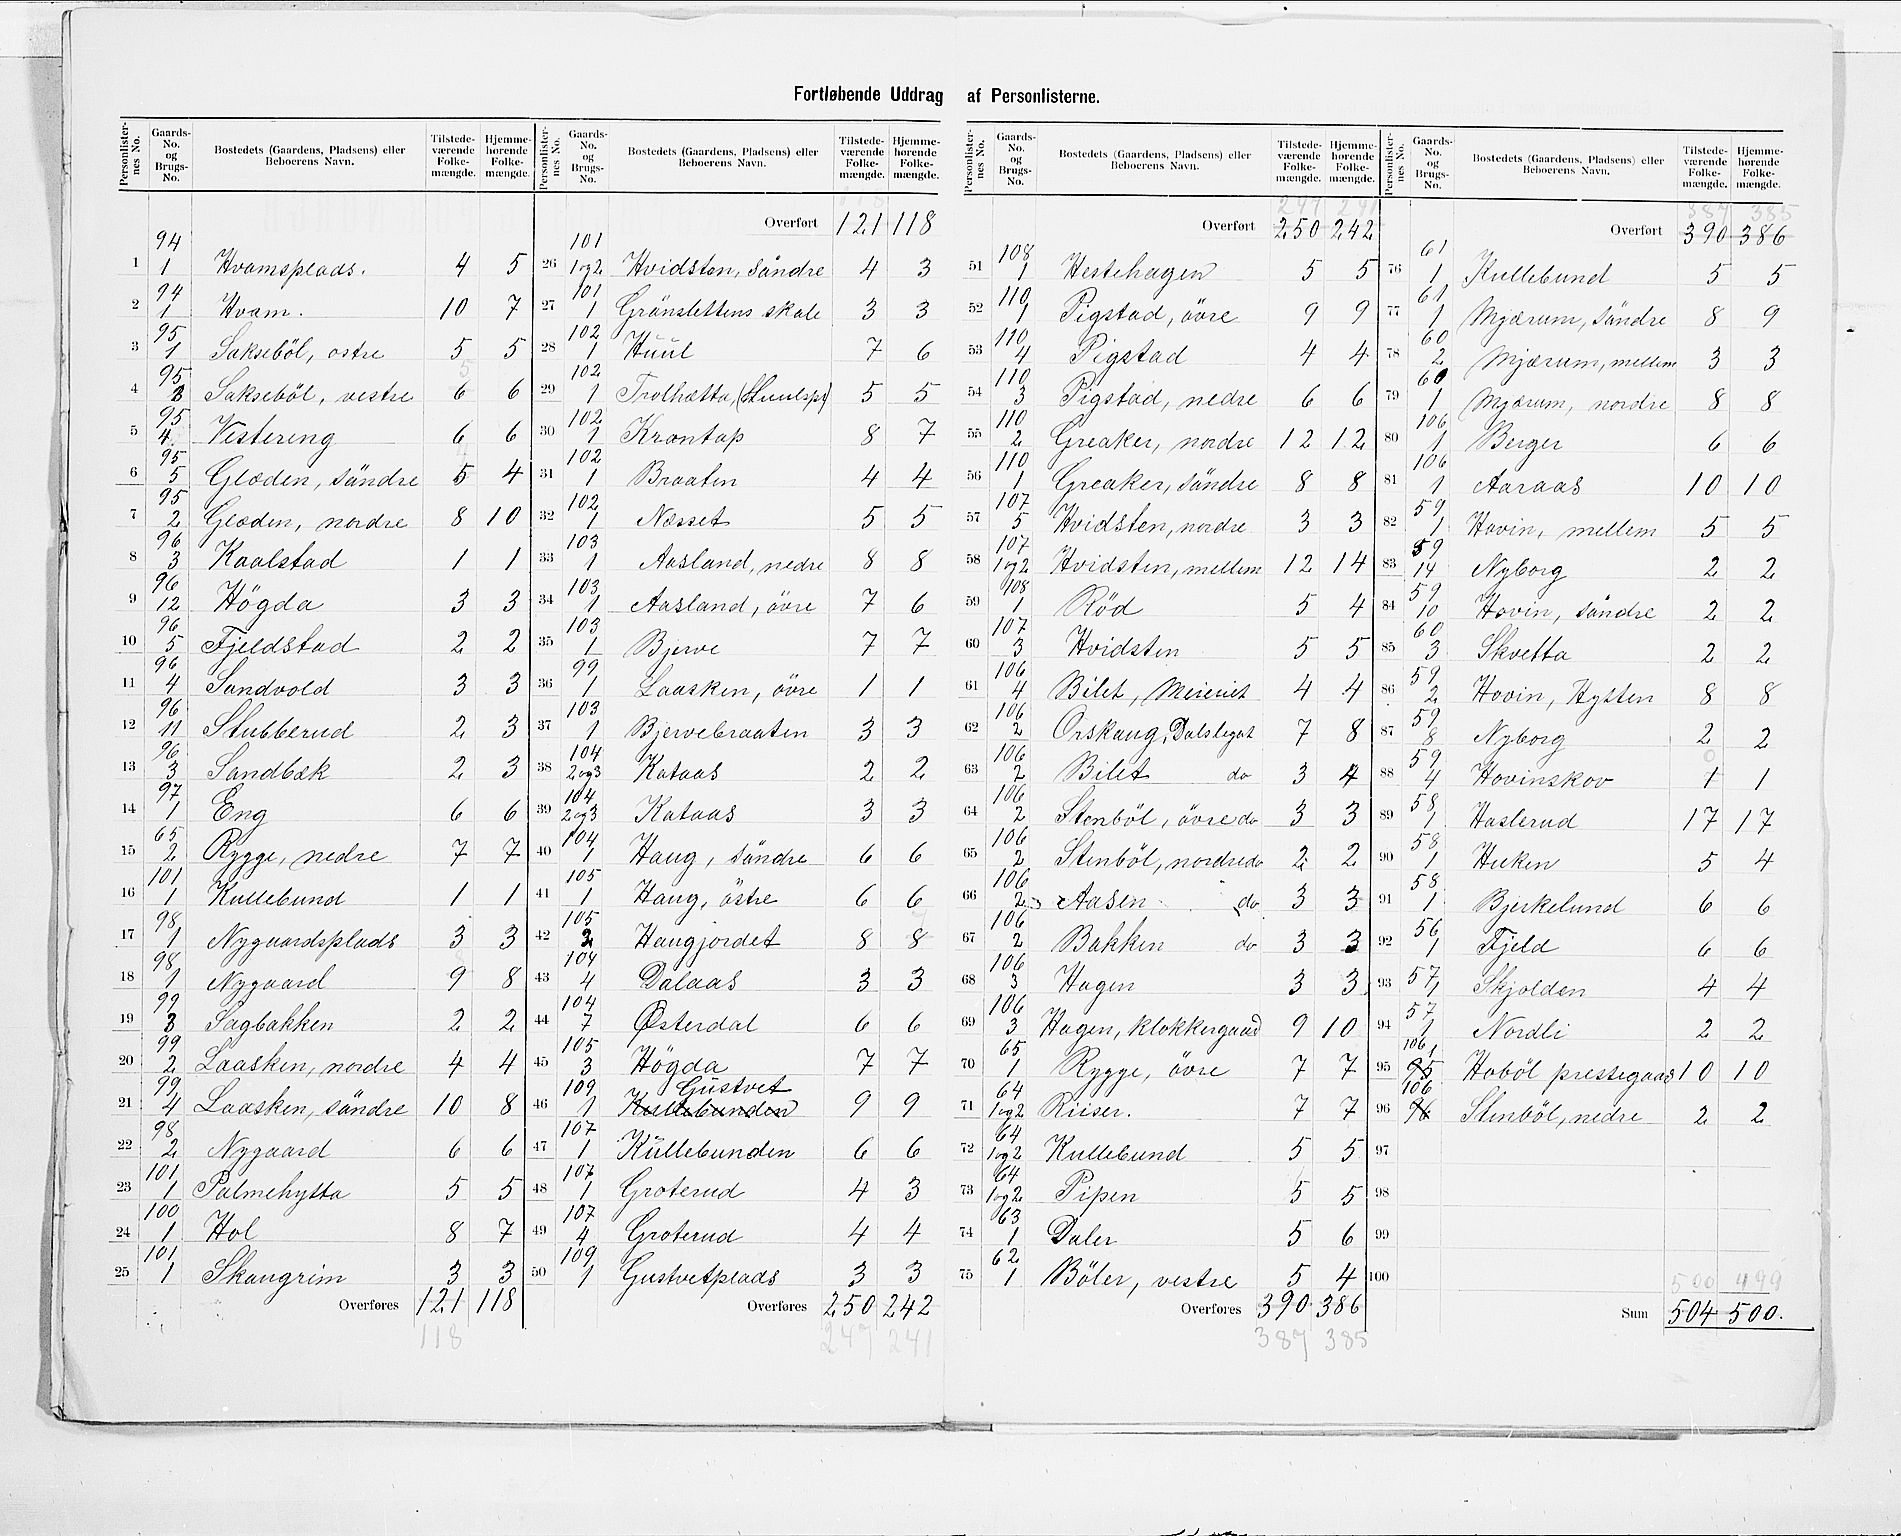 Fortløbende Uddrag af Personlisterne.
Personlisternes No. | Gaards-No. og Brugs-No. | Bostedets (Gaardens, Pladsens) eller Beboerens Navn. | Tilstedeværende Folkemængde. | Hjemmehørende Folkemængde.
1 | 94 1 | Hvamsplads. | 4 | 5
2 | 94 1 | Hvam. | 10 | 7
3 | 95 1 | Sakseböl, ostre | 5 | 5
4 | 95 3 | Sakseböl, vestre | 6 | 6
5 | 95 4. | Vestereng | 6 | 6
6 | 95 5 | Glæden, söndre | 5 | 4
7 | 95 2 | Glæden, nordre | 8 | 10
8 | 96 3 | Kaalstad | 1 | 1
9 | 96 12 | Högda | 3 | 3
10 | 96 5 | Fjeldstad | 2 | 2
11 | 96 4 | Sandvold | 3 | 3
12 | 96 11 | Stubberud | 2 | 3
13 | 96 3 | Sandbæk | 2 | 3
14 | 97 1 | Eng | 6 | 6
15 | 65 2 | Rygge, nedre | 7 | 7
16 | 101 1 | Kullebund | 1 | 1
17 | 98 1 | Nygaardsplads | 3 | 3
18 | 98 1 | Nygaard | 9 | 8
19 | 99 3 | Sagbakken | 2 | 2
20 | 99 2 | Laasken, nordre | 4 | 4
21 | 99 4 | Laasken, söndre | 10 | 8
22 | 98 2 | Nygaard | 6 | 6
23 | 101 1 | Palmehytta | 5 | 5
24 | 100 1 | Hol | 8 | 7
25 | 101 1 | Skaugrim | 3 | 3
Overføres 121 118
118
Personlisternes No. | Gaards-No. og Brugs-No. | Bostedets (Gaardens, Pladsens) eller Beboerens Navn. | Tilstedeværende Folkemængde. | Hjemmehørende Folkemængde.
118
Overført 121 118
26 | 101 1og2 | Hvidsten, söndre | 4 | 3
27 | 101 1 | Grönslettens skole | 3 | 3
28 | 102 1 | Huul | 7 | 6
29 | 102 1 | Trolhætta, (Huulspl) | 5 | 5
30 | 102 1 | Krontap | 8 | 7
31 | 102 1 | Braaten | 4 | 4
32 | 102 1 | Næsset | 5 | 5
33 | 103 1 | Aasland, nedre | 8 | 8
34 | 103 1 | Aasland, övre | 7 | 6
35 | 103 1 | Bjerve | 7 | 7
36 | 99 1 | Laasken, övre | 1 | 1
37 | 103 1 | Bjervebraaten | 3 | 3
38 | 104 2og3 | Kataas | 2 | 2
39 | 104 2og3 | Kataas | 3 | 3
40 | 104 1 | Haug, söndre | 6 | 6
41 | 105 1 | Haug, östre | 6 | 6
42 | 105 2 | Haugjordet | 8 | 8
43 | 104 4 | Dalaas | 3 | 3
44 | 104 7 | Østerdal | 6 | 6
45 | 105 3 | Högda | 7 | 7
46 | 109 1 | Gustvet Kullebunden | 9 | 9
47 | 107 1 | Küllebunden | 6 | 6
48 | 107 1 | Groterud | 4 | 3
49 | 107 4 | Groterud | 4 | 4
50 | 109 1 | Gustvetplads | 3 | 3
Overføres 250 242
247 241
Personlisternes No. | Gaards-No. og Brugs-No. | Bostedets (Gaardens, Pladsens) eller Beboerens Navn. | Tilstedeværende Folkemængde. | Hjemmehørende Folkemængde.
247 241
Overført 250 242
51 | 108 1 | Hestehagen | 5 | 5
52 | 110 1 | Pigstad, övre | 9 | 9
53 | 110 4 | Pigstad | 4 | 4
54 | 110 3 | Pigstad, nedre | 6 | 6
55 | 110 2 | Greaker, nordre | 12 | 12
56 | 110 1 | Greaker, söndre | 8 | 8
57 | 107 5 | Hvidsten, nordre | 3 | 3
58 | 107 1og2 | Hvidsten, mellem | 12 | 14
59 | 108 1 | Röd | 5 | 4
60 | 107 3 | Hvidsten | 5 | 5
61 | 106 4 | Bilet, Meieriet | 4 | 4
62 | 106 2 | Orskaug, Dalsleget | 7 | 8
63 | 106 2 | Bilet do | 3 | 4
64 | 106 2 | Stenböl, övre do | 3 | 3
65 | 106 2 | Stenböl, nordre do | 2 | 2
66 | 106 2 | Aasen do | 3 | 3
67 | 106 2 | Bakken do | 3 | 3
68 | 106 3 | Hagen | 3 | 3
69 | 106 3 | Hagen, klokkergaard | 9 | 10
70 | 65 1 | Rygge, övre | 7 | 7
71 | 64 1og2 | Riiser. | 7 | 7
72 | 64 1og2 | Kullebund | 5 | 5
73 | 64 1og2 | Pipen | 5 | 5
74 | 63 1 | Daler | 5 | 6
75 | 62 1 | Böler, vestre | 5 | 4
Overføres 390 386
387 385
Personlisternes No. | Gaards-No. og Brugs-No. | Bostedets (Gaardens, Pladsens) eller Beboerens Navn. | Tilstedeværende Folkemængde. | Hjemmehørende Folkemængde.
387 385
Overført 390 386
76 | 61 1 | Kullebund | 5 | 5
77 | 61 1 | Mjærum, söndre | 8 | 9
78 | 60 2 | Mjærum, mellem | 3 | 3
79 | 60 1 | Mjærum, nordre | 8 | 8
80 | 106 1 | Berger | 6 | 6
81 | 106 1 | Aaraas | 10 | 10
82 | 59 1 | Hovin, mellem | 5 | 5
83 | 59 14 | Nyborg | 2 | 2
84 | 59 10 | Hovin, söndre | 2 | 2
85 | 60 3 | Skvetta | 2 | 2
86 | 59 2 | Hovin, Hytten | 8 | 8
87 | 59 8 | Nyborg | 2 | 2
88 | 59 4 | Hovinskov | 1 | 1
89 | 58 1 | Haslerud | 17 | 17
90 | 58 1 | Heeken | 5 | 4
91 | 58 1 | Bjerkelund | 6 | 6
92 | 56 1 | Fjeld | 6 | 6
93 | 57 1 | Skjolden | 4 | 4
94 | 57 1 | Nordli | 2 | 2
95 | 106 1 | Hoböl prestegaard | 10 | 10
96 | 106 | Stenböl, nedre | 2 | 2
97
98
99
100
500 499
Sum 504 500.